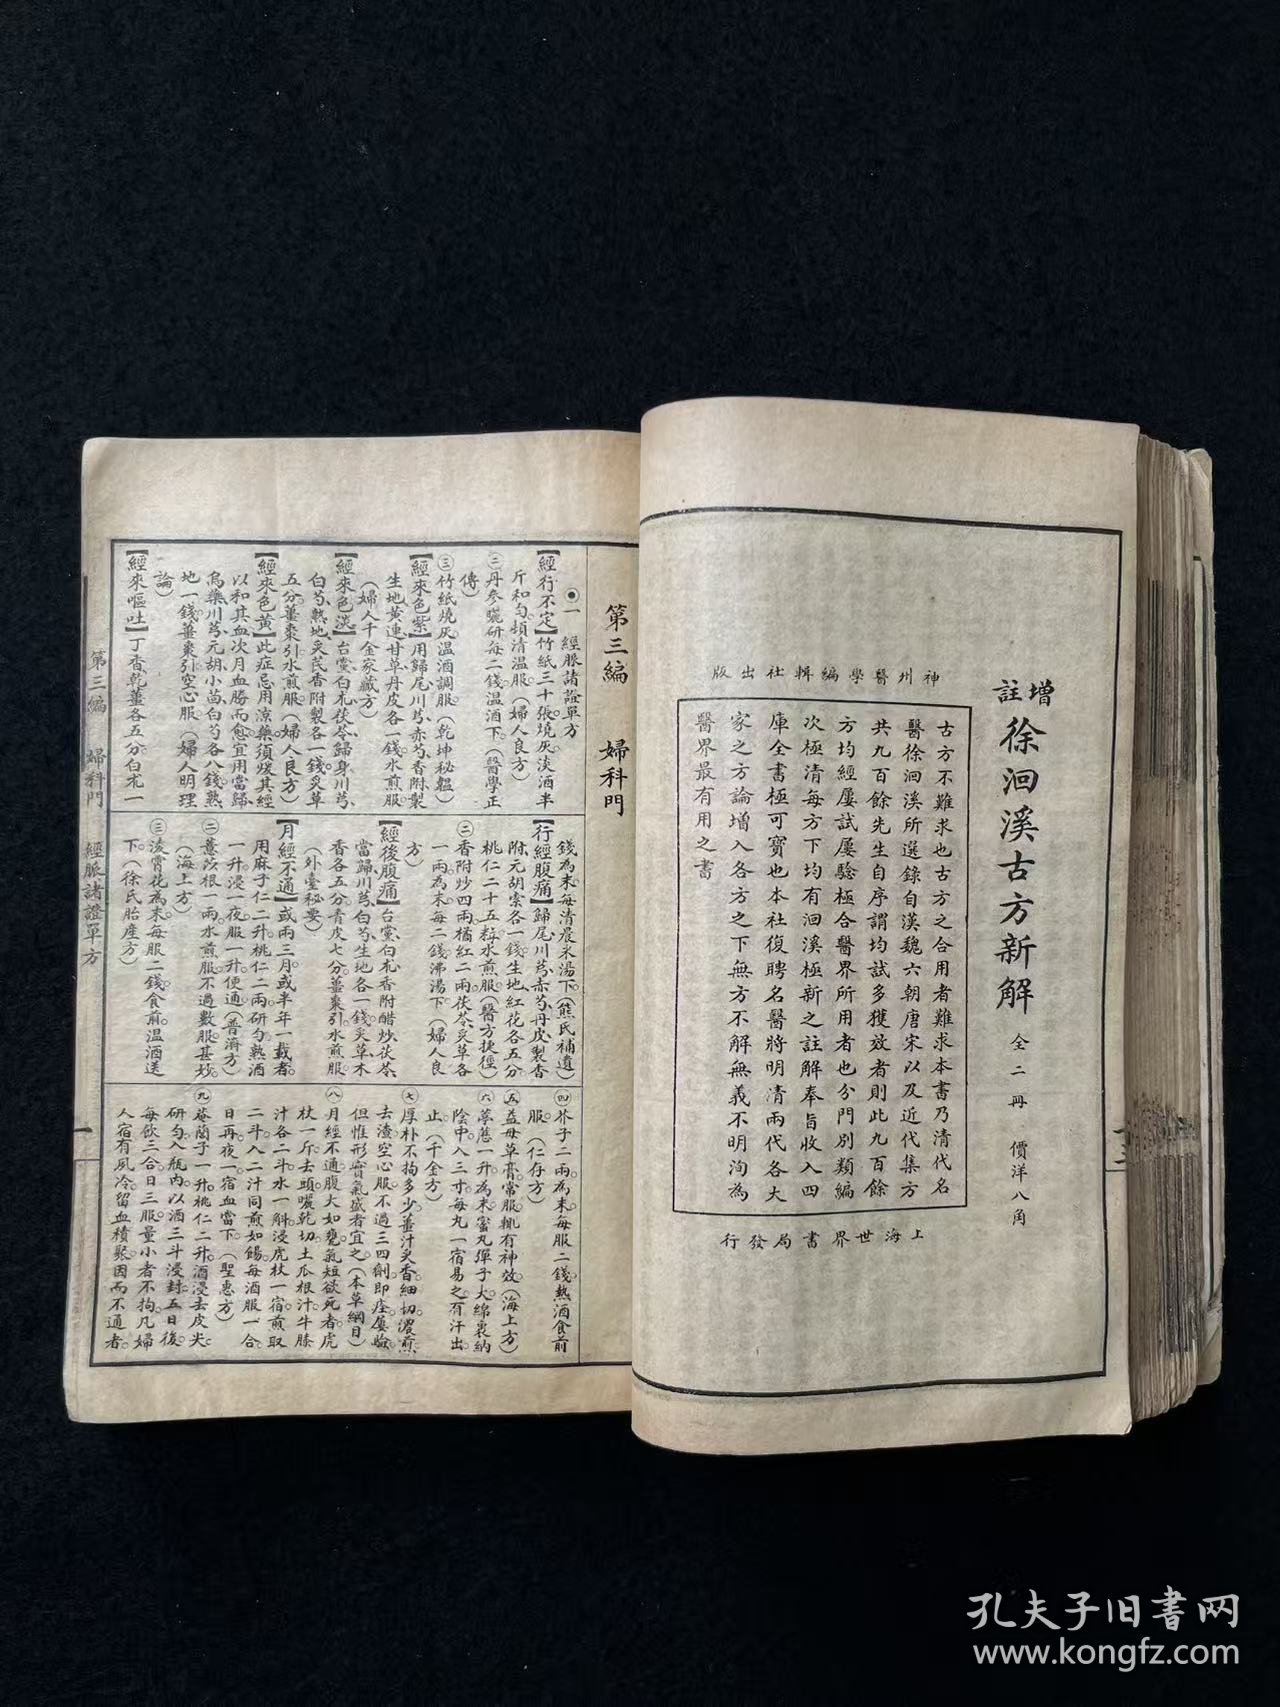 增註
徐洄溪古方新解
全二冊 價洋八角
神州醫學編輯社出版
古方不難求也古方之合用者難求本書乃清代名
醫徐洄溪所選錄自漢魏六朝唐宋以及近代集方
共九百餘先生自序謂均試多獲效者則此九百餘
方均經屢試屢驗極合醫界所用者也分門別類編
次極清每方下均有洄溪極新之註解奉旨收入四
庫全書極可寶也本社復聘名醫將明清兩代各大
家之方論增入各方之下無方不解無義不明洵為
醫界最有用之書
上海世界書局發行
第三編 婦科門
一 經脈諸證單方
【經行不定】竹紙三十張燒灰淡酒半
斤和勻頓清溫服(婦人良方)
㊁丹參曬研每二錢溫酒下(醫學正
傳)
㊂竹紙燒灰溫酒調服(乾坤秘韞)
【經來色紫】用歸尾川芎赤芍香附製
生地黃連甘草丹皮各一錢水煎服
(婦人千金家藏方)
【經來色淡】台黨白朮茯苓歸身川芎
白芍熟地炙芪香附製各一錢炙草
五分薑棗引水煎服(婦人良方)
【經來色黃】此症忌用涼藥須煖其經
以和其血次月血勝而愈宜用當歸
烏藥川芎元胡小茴白芍各八錢熟
地一錢薑棗引空心服(婦人明理
論)
【經來嘔吐】丁香乾薑各五分白朮一
錢為末每清晨米湯下(熊氏補遺)
【行經腹痛】歸尾川芎赤芍丹皮製香
附元胡索各一錢生地紅花各五分
桃仁二十五粒水煎服(醫方捷徑)
㊁香附炒四兩橘紅二兩茯苓炙草各
一兩為末每二錢沸湯下(婦人良
方)
【經後腹痛】台黨白朮香附醋炒茯苓
當歸川芎白芍生地各一錢炙草木
香各五分青皮七分薑棗引水煎服
(外臺秘要)
【月經不通】或兩三月或半年一載者
用麻子仁二升桃仁二兩研勻熟酒
一升浸一夜服一升便通(普濟方)
㊁薏苡根一兩水煎服不過數服甚妙
(海上方)
㊂淩霄花為末每服二錢食前溫酒送
下(徐氏胎產方)
㊃芥子二兩為末每服二錢熱酒食前
服(仁存方)
㊄益母草膏常服輒有神效(海上方)
㊅葶藶一升為末蜜丸彈子大綿裹納
陰中入三寸每丸一宿易之有汗出
止(千金方)
㊆厚朴不拘多少薑汁炙香細切濃煎
去渣空心服不過三四劑即痊屢驗
但惟形實氣盛者宜之(本草綱目)
㊇月經不通腹大如甕氣短欲死者虎
杖一斤去頭暖乾切土瓜根汁牛膝
汁各二斗水一斛浸虎杖一宿煎取
二斗入二汁同煎如餳每酒服一合
日再夜一宿血當下(聖惠方)
㊈菴䕡子一升桃仁二升酒浸去皮尖
研勻入瓶內以酒三斗浸封五日後
每飲三合日三服量小者不拘凡婦
人宿有風冷留血積聚因而不通者
第三編 婦科門 經脈諸證單方
一
孔夫子旧书网
www.kongfz.com